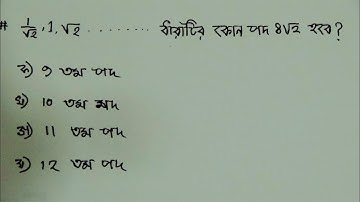 # 1/√2, 1, √2 ......... ধারাটির কোন পদ 8√2 হবে?
ক) 9 তম পদ
খ) 10 তম পদ
গ) 11 তম পদ
ঘ) 12 তম পদ